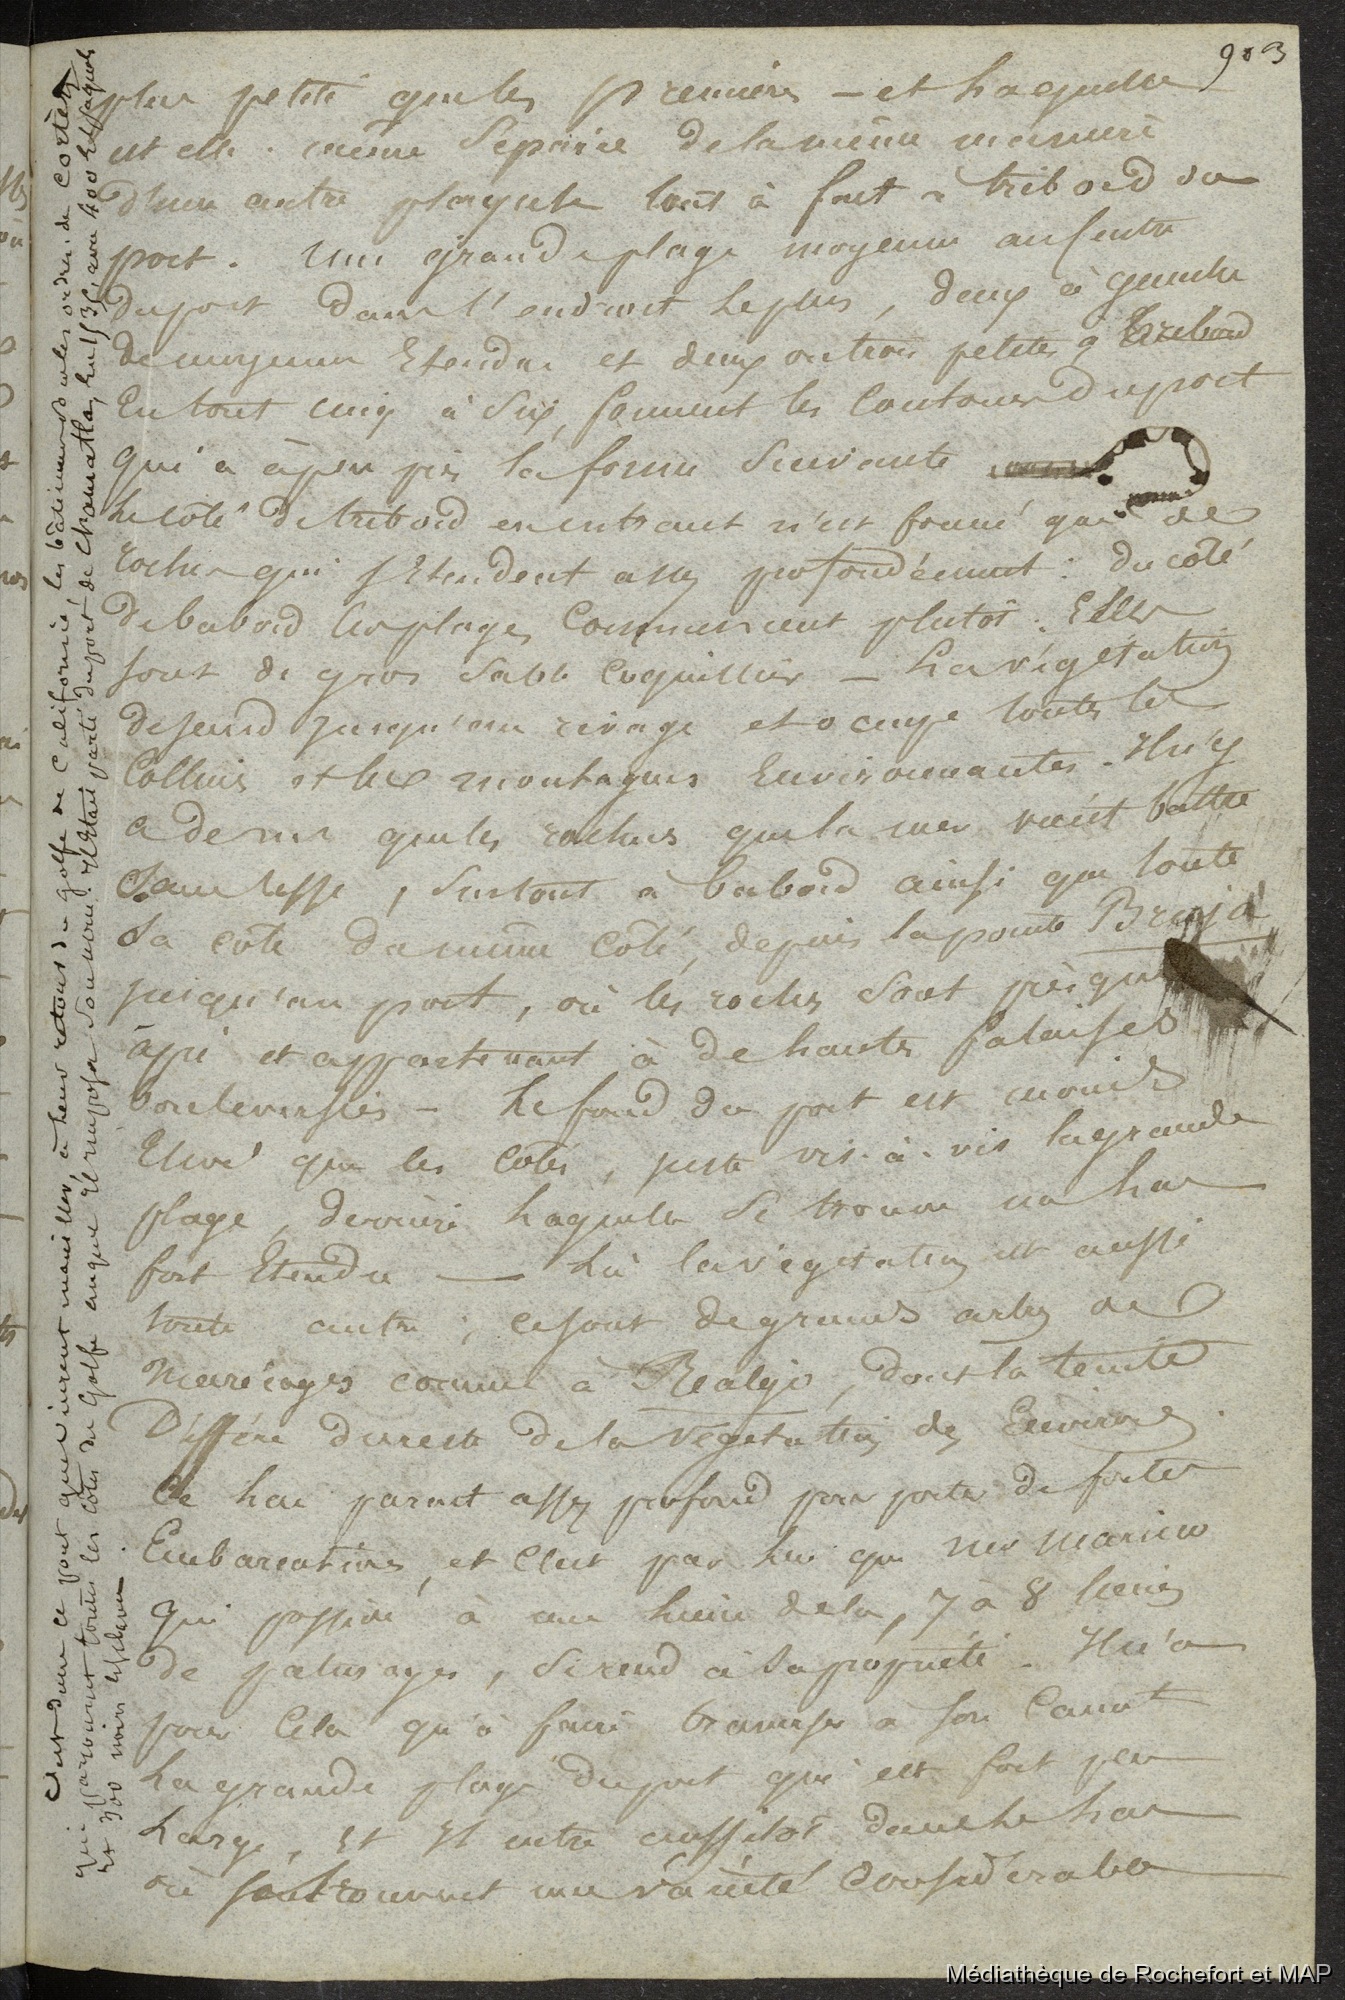 903
plus petite que les premières – et Laquelle
est elle. même Séparée de la même manière
d'une autre plage tout à fait à tribord du
port. Une grande plage moyenne au Centre
du port dans l'endroit le plus, deux à gauche
de moyenne Etendue et deux ou trois petites à tribord
En tout cinq à Six, forment les Contours du port
qui a àpeu près la forme Suivante
Le côté de tribord en entrant n'est formé que de
rocher qui s'Etendent assez profondément. du côté
de babord les plages Commencent plutôt. Elles
sont de gros Sable Coquillier – La végétation
descend jusqu'au rivage et occupe toutes les
Collines et les montagnes Environnantes. Il n'y
a de nu que les rochers que la mer vient battre
Sans cesse, Surtout à babord ainsi que toute
la côte du même côté, depuis la pointe Bruja
jusqu'au port, où les roches Sont presque
àpic et appartenant à de hautes falaises
bouleversées – Le fond du port est moins
Elevé que les côtés, juste vis-à-vis la grande
plage, derrière Laquelle Se trouve un Lac
fort Etendu — Là la végétation est aussi
toute autre, ce sont de grands arbres de
marécages comme à Realejo, dont la teinte
Diffère du reste de la végétation des Environs.
Ce Lac parait assez profond pour porter de fortes
Embarcations, et C'est par lui que
qui possède à une Lieue de là, 7 à 8 lieues
de paturages, Se rend à Sa propriété. Il n'a
pour Cela qu'à faire traverser à Son Canot
La grande plage du port qui est fort peu
Large, Et Il entre aussitôt dans le Lac
où Se trouvent une variété Considérable
C'est dans ce port que vinrent mouiller, à leur retour du golfe de Californie, les bâtiments sous les ordres de Cortez
qui parcourut toutes les côtes du Golfe auquel Il imposa Son nom. Il Etait parti du port de Chamatla, en 153, avec 400 Espagnols
et 300 noirs esclaves.
Médiathèque de Rochefort et MAP